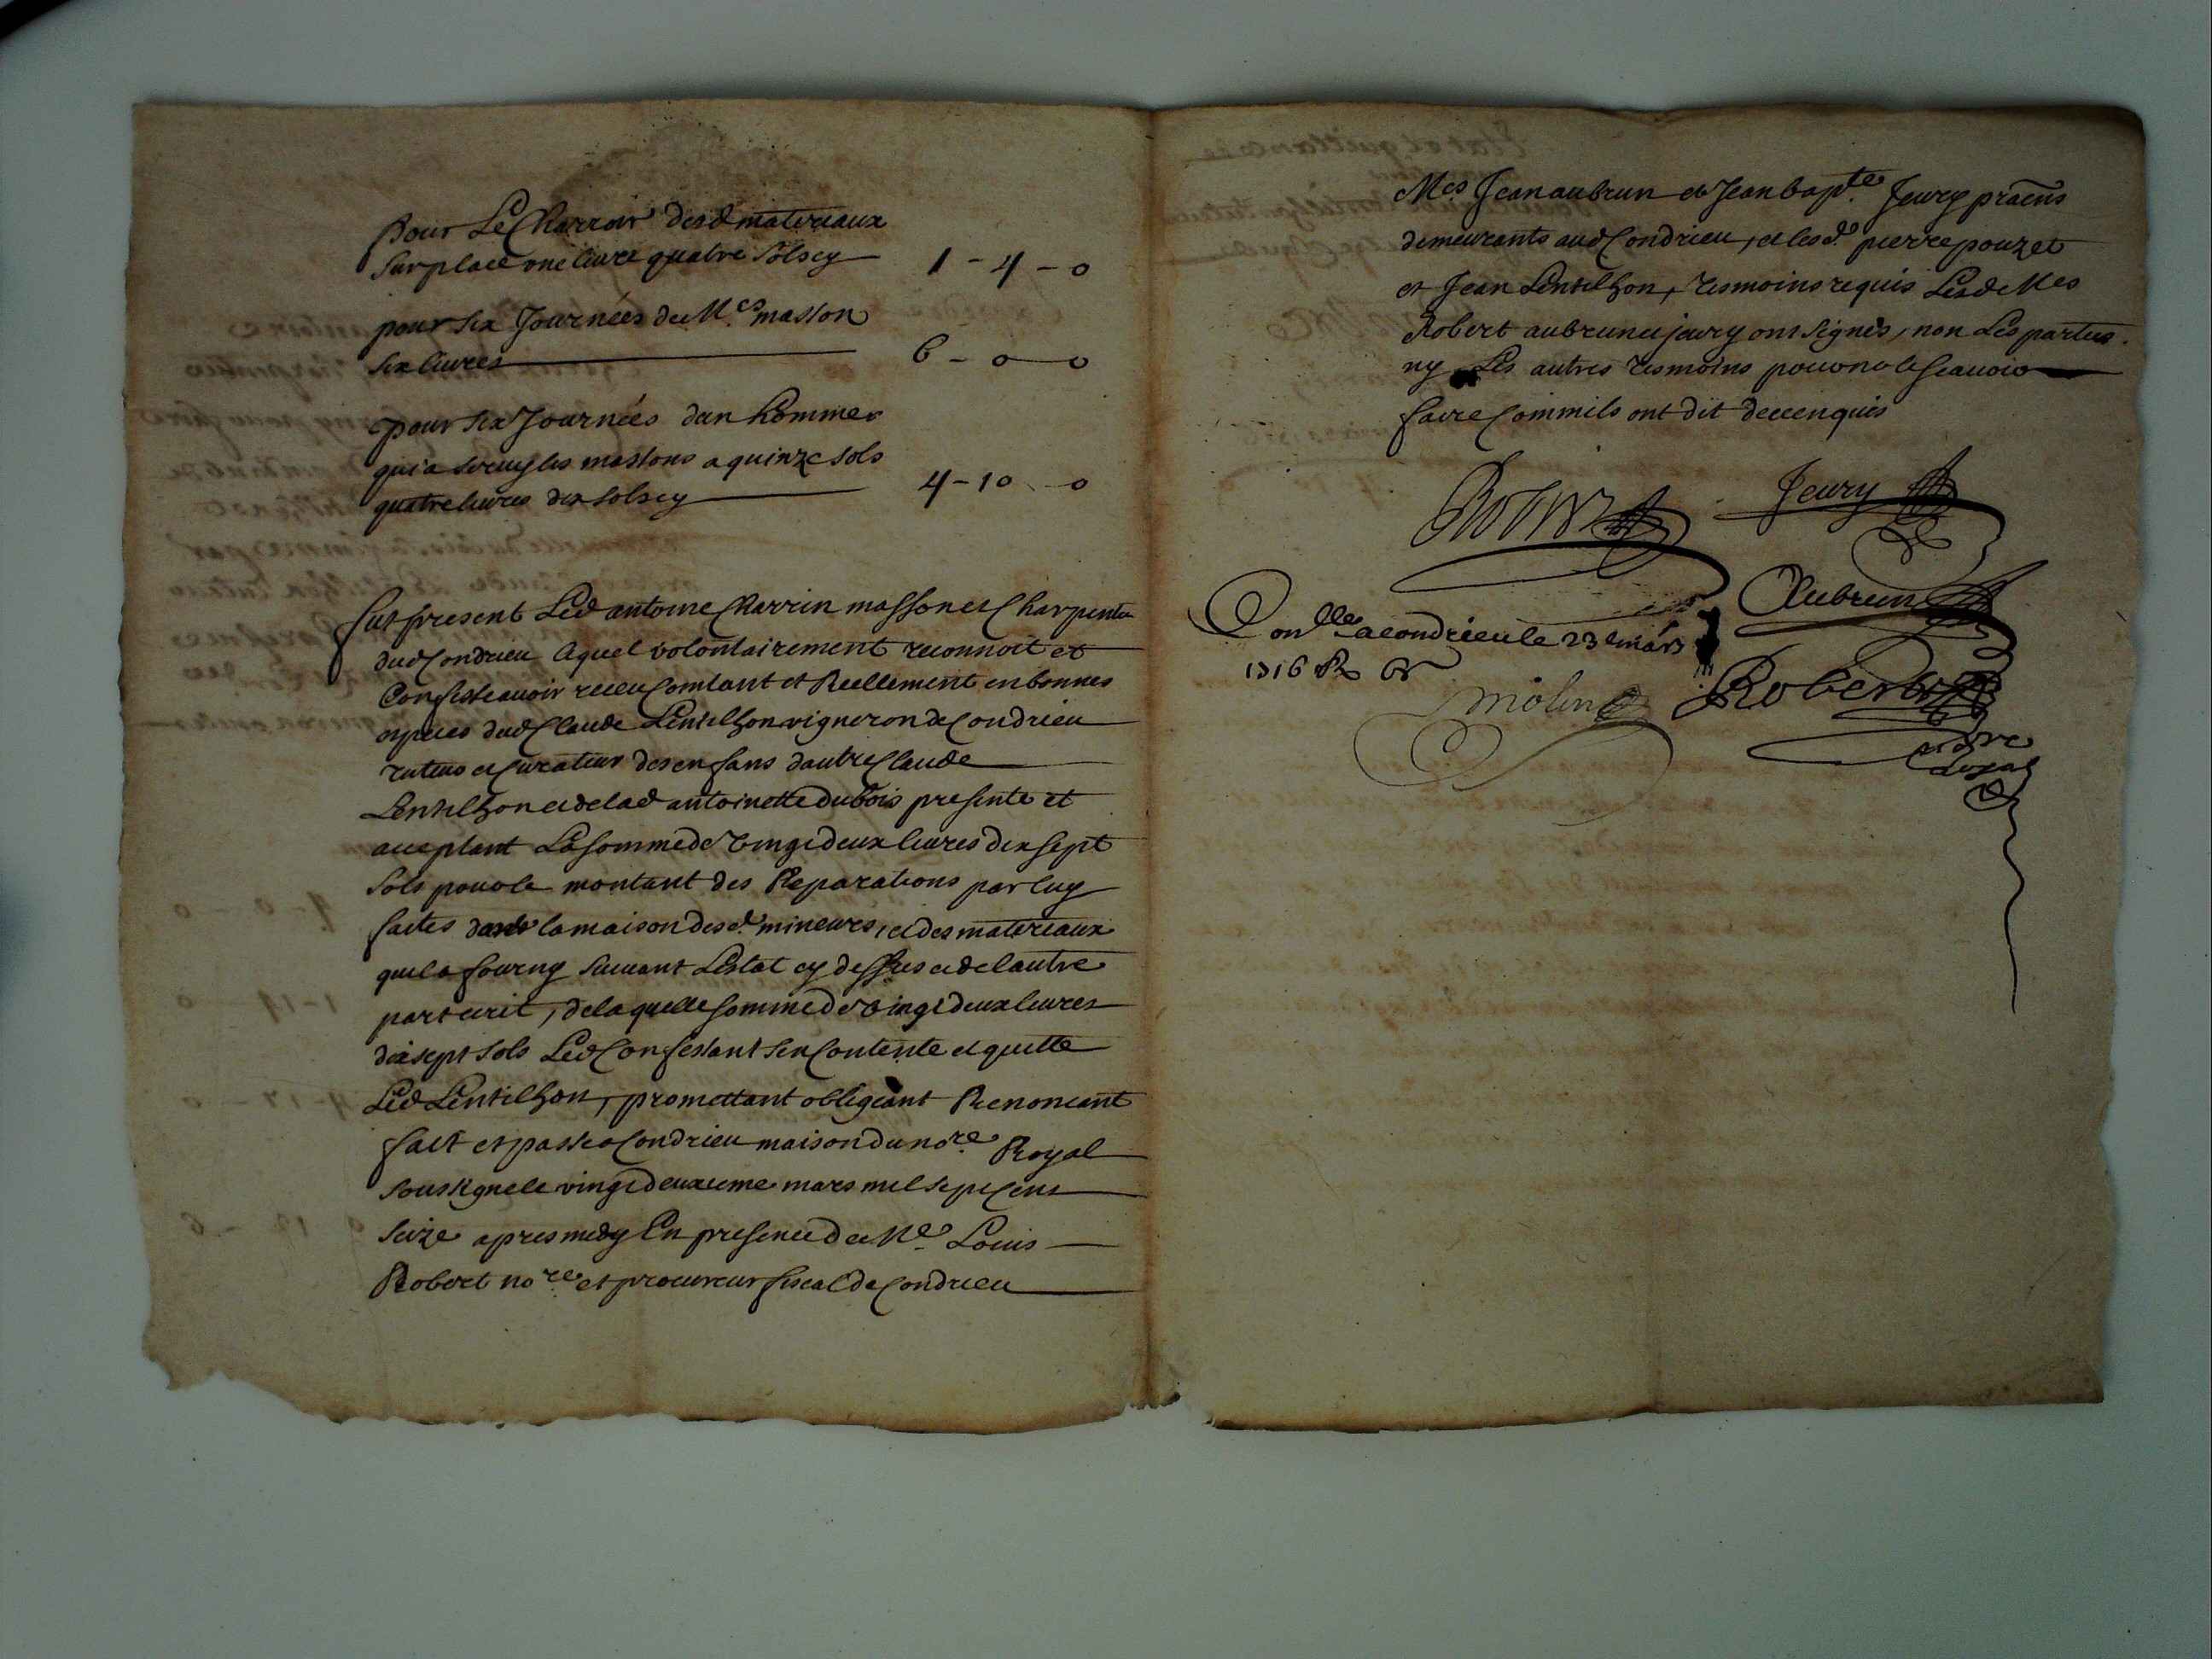 pour Le Charroir desd materiaux
Sur place une livre quatre Sols cy 1 - 4 - 0
pour six Journées de Me masson
six livres 6 - 0 - 0
pour six Journées dun homme
qui a servy les massons a quinze sols
quatre livres dix sols cy 4 - 10 - 0
fut present Led antoine Charrin masson et Charpentier
dud Condrieu Lequel volontairement reconnoit et
Confesse avoir receu Comtant et Reellement en bonnes
especes dud Claude Lentilhon vigneron de Condrieu
tuteur et Curateur des enfans dautre Claude
Lentilhon et de lad antoinette dubois presente et
acceptant La somme de vingt deux livres dix sept
sols pour le montant des Reparations par luy
faites dans la maison desd mineurs, et des materiaux
quil a fourny suivant Lestat cy dessus et de lautre
part ecrit, de laquelle somme de vingt deux livres
dix sept sols Led Confessant sen Contente et quitte
Led Lentilhon, promettant obligeant Renoncant
fait et passé a Condrieu maison du nore Royal
soussigne le vingt deuxieme mars mil sept Cens
seize apres midy En presence de Me Louis
Robert nore et procureur fiscal de Condrieu
Mes Jean aubrun et Jean bapte Jeury praens
demeurants aud Condrieu, et les d. pierre pouzet
et Jean Lentilhon, tesmoins requis Lesd Mes
Robert aubrun et jeury ont signés, non Les parties
ny Les autres tesmoins pour ne le scavoir
faire Comm ils ont dit de ce enquis
Robert Jeury
Aubrun
Conlle a condrieu le 23e mars
1716 R
molin Robert
nore
Royal